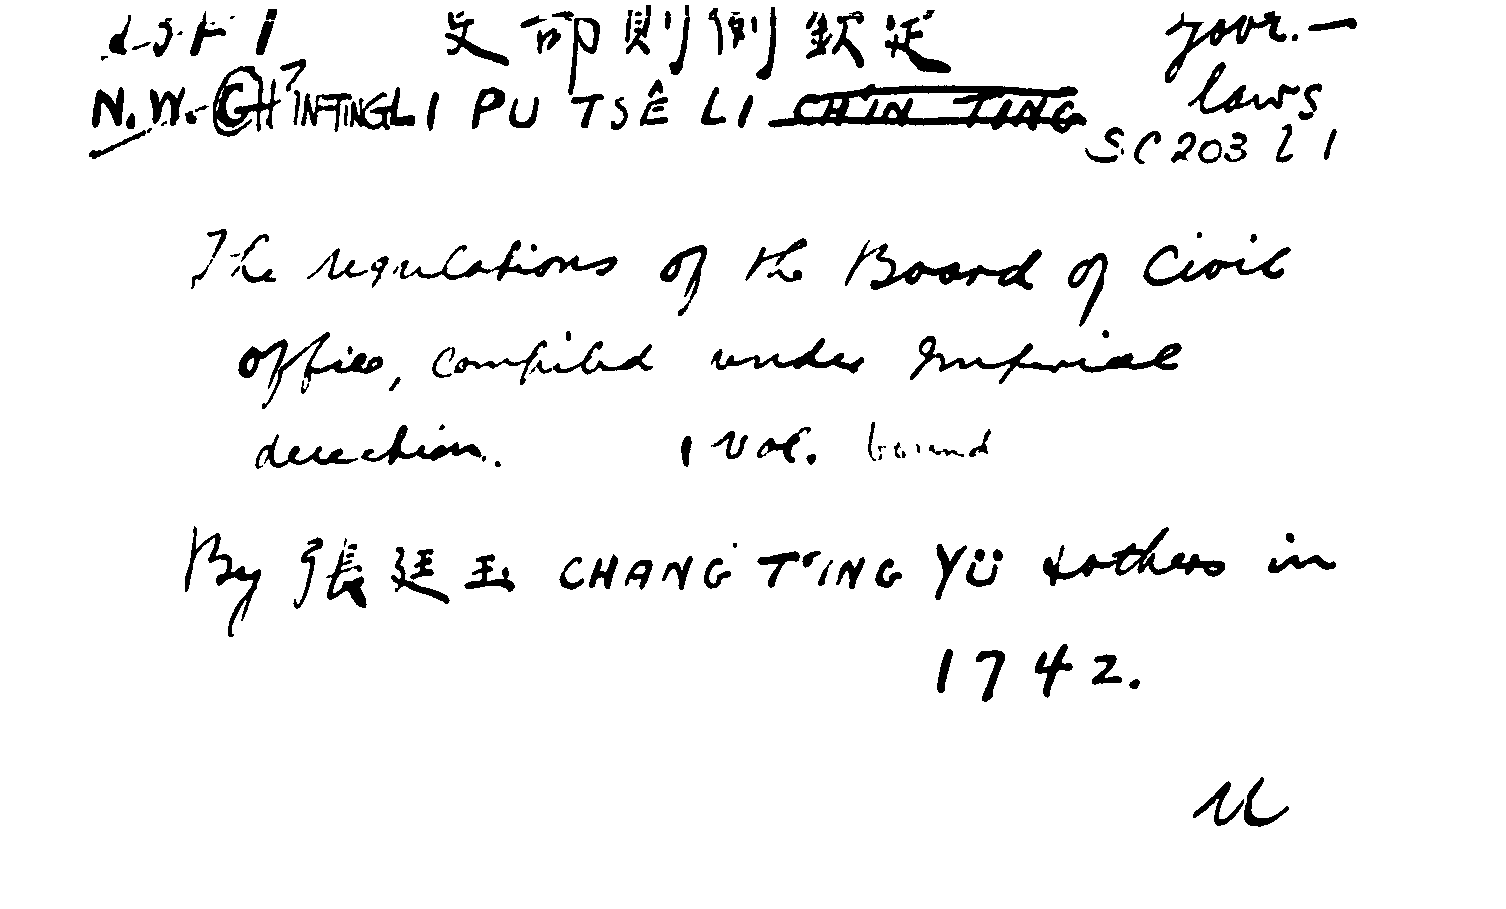 吏部則例欽定 gour.—
N.W. CH'IN-TING LI PU TSÊ LI CH'IN TING laws
SC203 21
The regulations of the Board of Civil
Office, compiled under Imperial
direction. 1 vol. bound
By 張廷玉 CHANG T'ING YÜ & others in
1742.